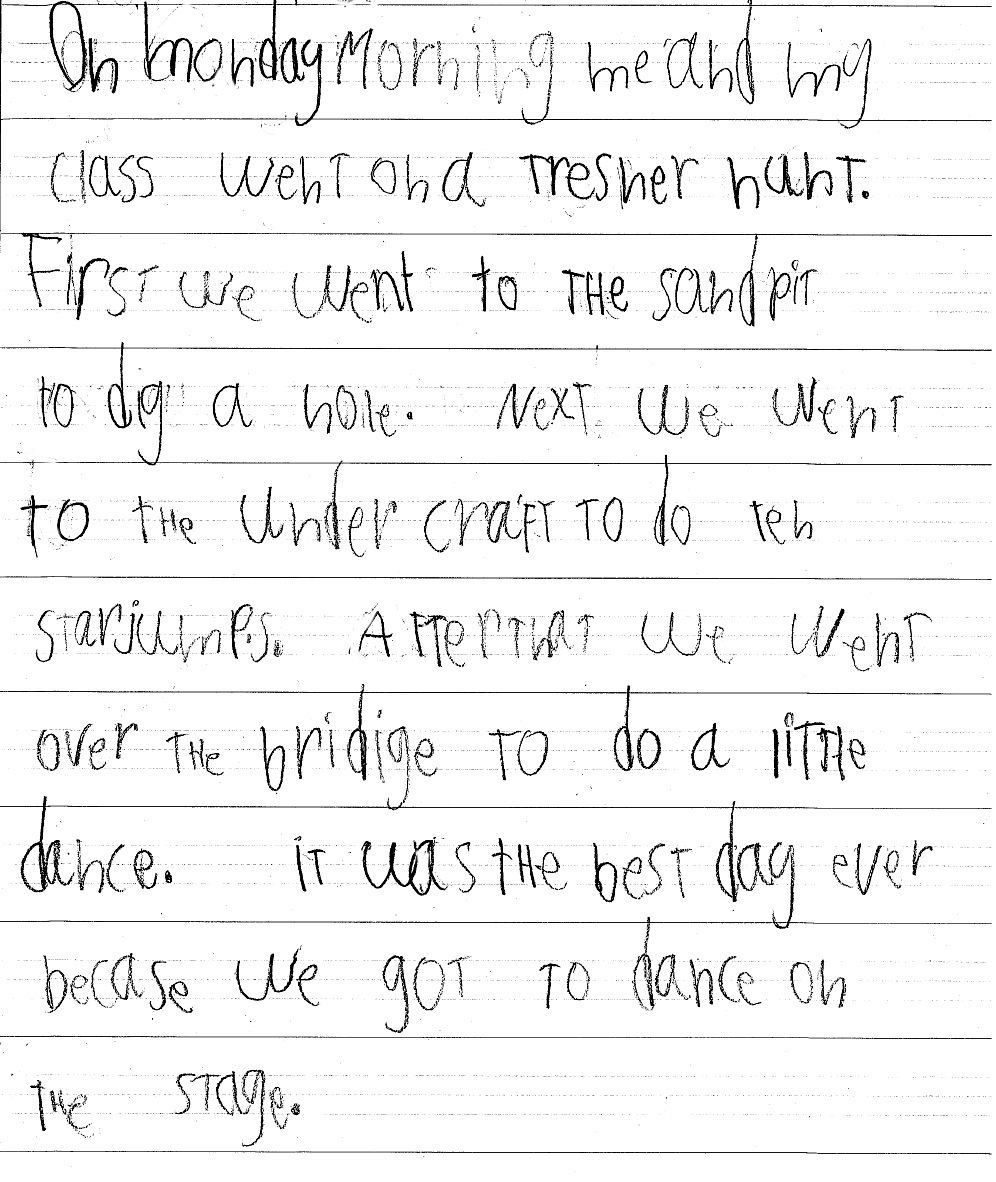 On monday Morning me and my
class went on a tresher hunt.
First we went to THe sandpit
to dig a hole. Next we went
to tHe under craft TO do ten
starjumps. After that we went
over THe bridige TO do a little
dance. it was tHe best day ever
becase we got TO dance on
tHe stage.